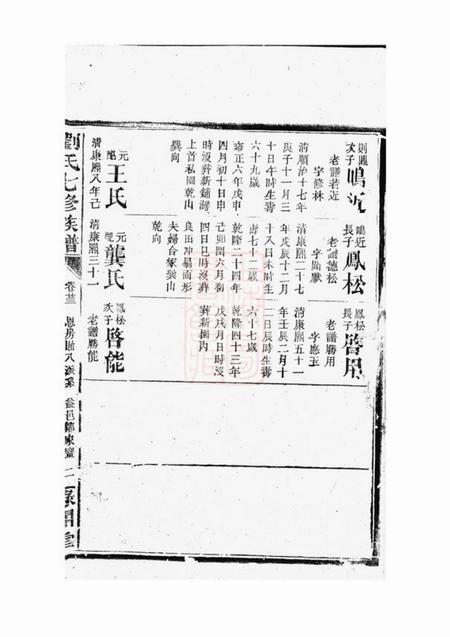 則
次子
鳴
老譜若近
字修林
清順治十七年
庚子十一月三
十日午時生壽
六十九歲
雍正六年戊申
四月初十日申
時沒葬新鋪灣
上首私園乾山
巽向
元配王氏
清康熙八年己
鳴近長子鳳松
老譜德松
清康熙二十七
年戊辰十二月
十八日未時生
壽七十二歲
乾隆二十四年
己卯閏六月初
四日巳時沒葬
良田冲易家形
夫婦合冢巽山
乾向
元配龔氏
清康熙三十一
鳳松長子啓用
老譜勝用
字應玉
清康熙五十一
年壬辰二月十
二日辰時生壽
六十七歲
乾隆四十三年
戊戌月日時沒
葬新園內
鳳松次子啓能
老譜勝能
劉氏七修族譜
卷
恩房
益邑
二